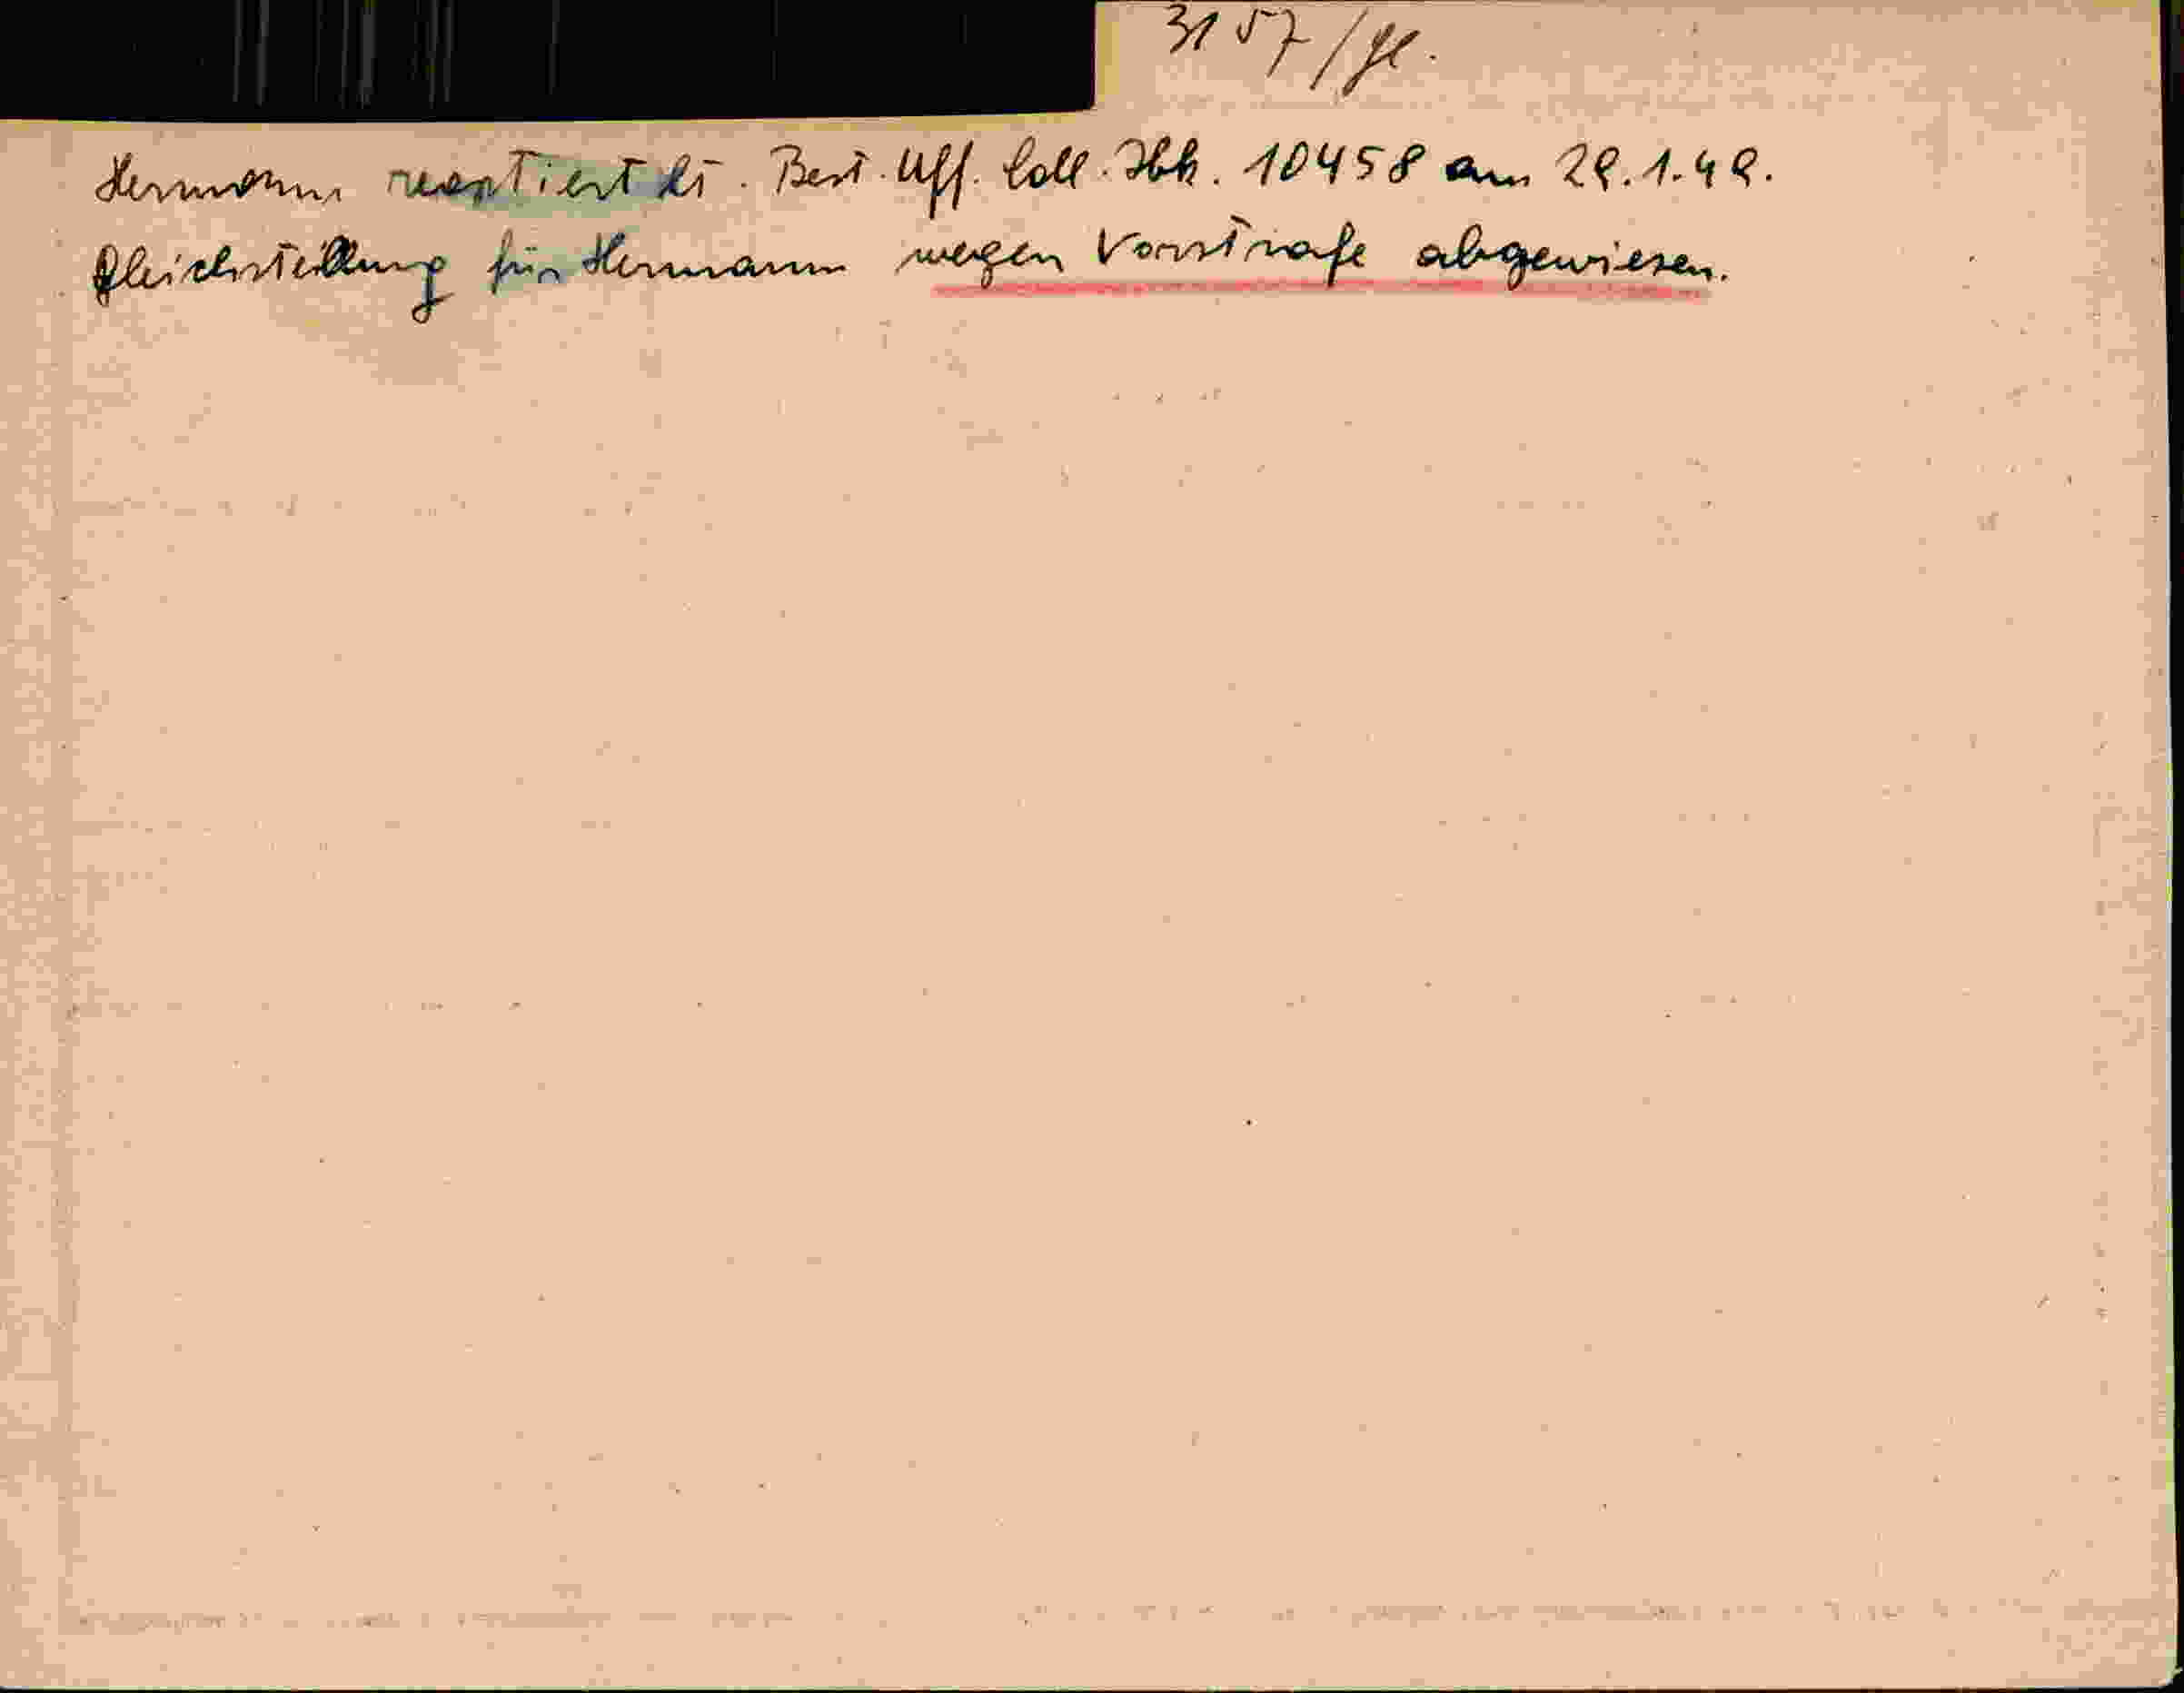 3157/Gl.
Hermann reoptiert lt. Best. Uff. Coll. Ibk. 10458 am 28.1.48.
Gleichstellung für Hermann wegen Vorstrafe abgewiesen.